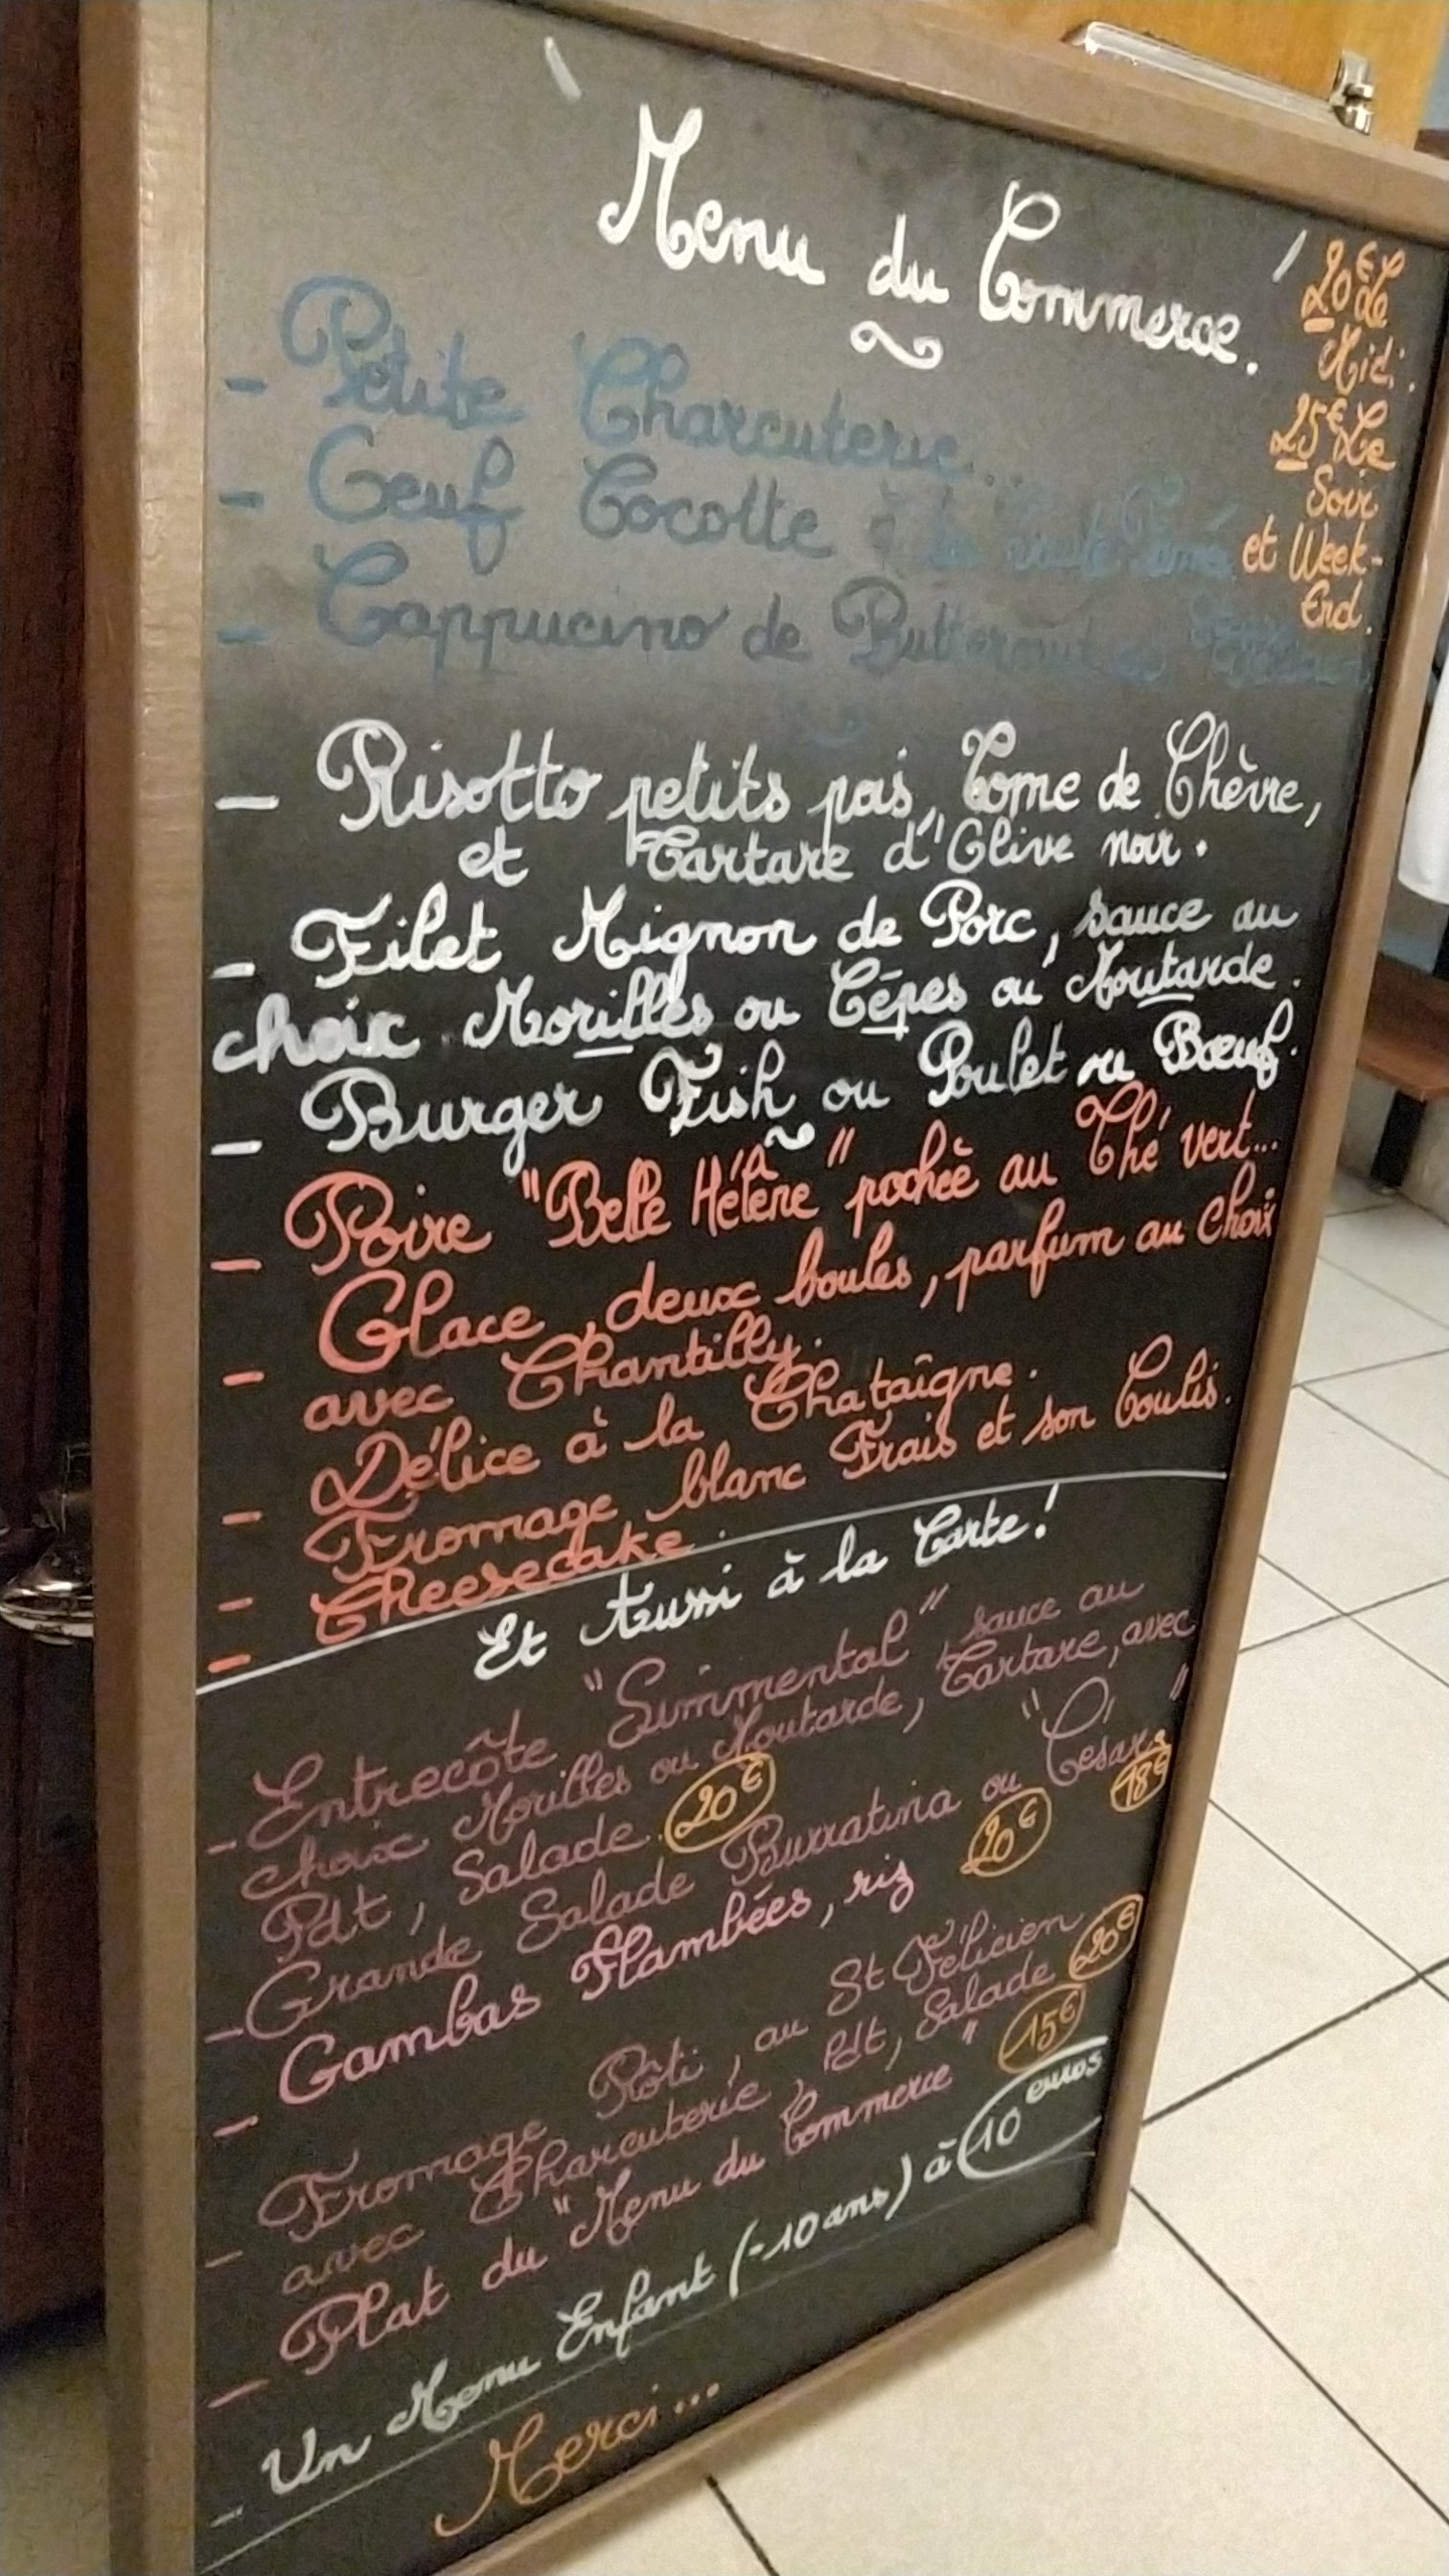 Menu du Commerce.
20€ Le
Midi.
25€ Le
Soir
et Week-
End.
- Petite Charcuterie...
- Oeuf Cocotte à la
- Cappucino de Butternut
- Risotto petits pois, Tome de Chèvre,
et Tartare d'Olive noir.
- Filet Mignon de Porc, sauce au
choix Morilles ou Cêpes ou Moutarde.
- Burger Fish ou Poulet ou Bœuf.
- Poire "Belle Hélène" pochée au Thé vert...
- Glace, deux boules, parfum au choix
avec Chantilly.
- Délice à la Chataîgne.
- Fromage blanc Frais et son Coulis.
- Cheesecake.
Et Aussi à la Carte!
- Entrecôte "Simmental" sauce au
choix Morilles ou Moutarde, Tartare, avec
Pdt, Salade. 20€
- Grande Salade Burratina ou "César" 18€
- Gambas Flambées, riz 20€
- Fromage Rôti, au St Félicien
avec Charcuterie, Pdt, Salade 20€
- Plat du "Menu du Commerce" 15€
- Un Menu Enfant (-10 ans) à 10 euros
Merci...